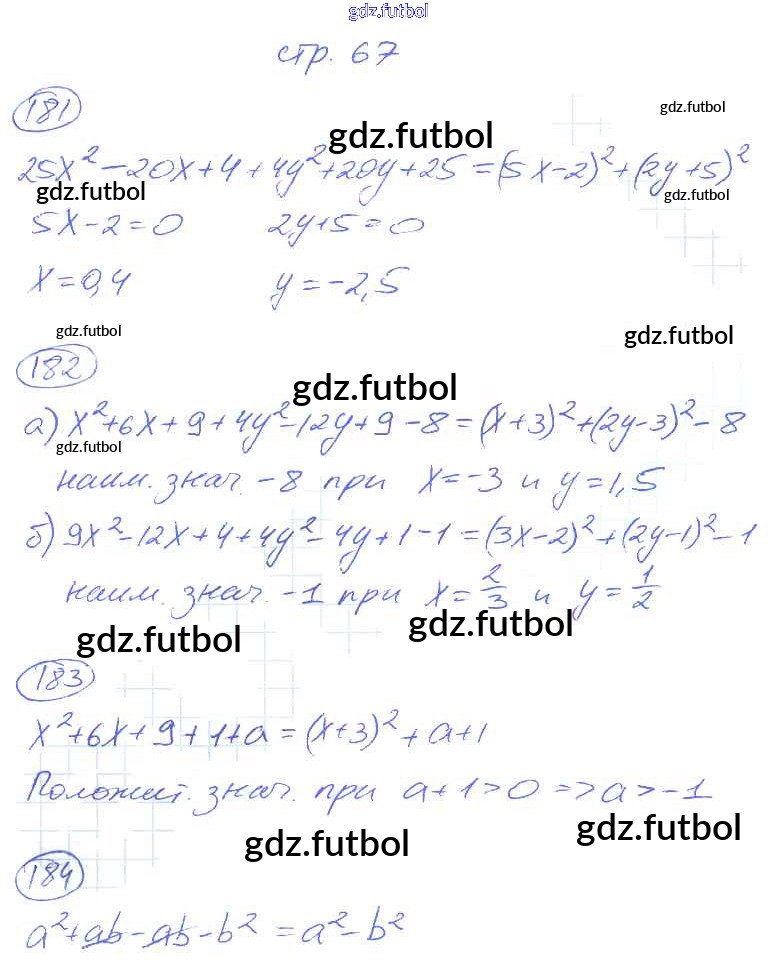 gdz.futbol
стр. 67
181
gdz.futbol
gdz.futbol
25x² - 20x + 4 + 4y² + 20y + 25 = (5x - 2)² + (2y + 5)²
gdz.futbol
gdz.futbol
5x - 2 = 0 2y + 5 = 0
x = 0,4 y = -2,5
gdz.futbol
gdz.futbol
182
gdz.futbol
а) x² + 6x + 9 + 4y² - 12y + 9 - 8 = (x + 3)² + (2y - 3)² - 8
gdz.futbol
наим. знач. -8 при x = -3 и y = 1,5
б) 9x² - 12x + 4 + 4y² - 4y + 1 - 1 = (3x - 2)² + (2y - 1)² - 1
наим. знач. -1 при x = 2/3 и y = 1/2
gdz.futbol
gdz.futbol
183
x² + 6x + 9 + 1 + a = (x + 3)² + a + 1
Положит. знач. при a + 1 > 0 => a > -1
gdz.futbol
gdz.futbol
184
a² + ab - ab - b² = a² - b²